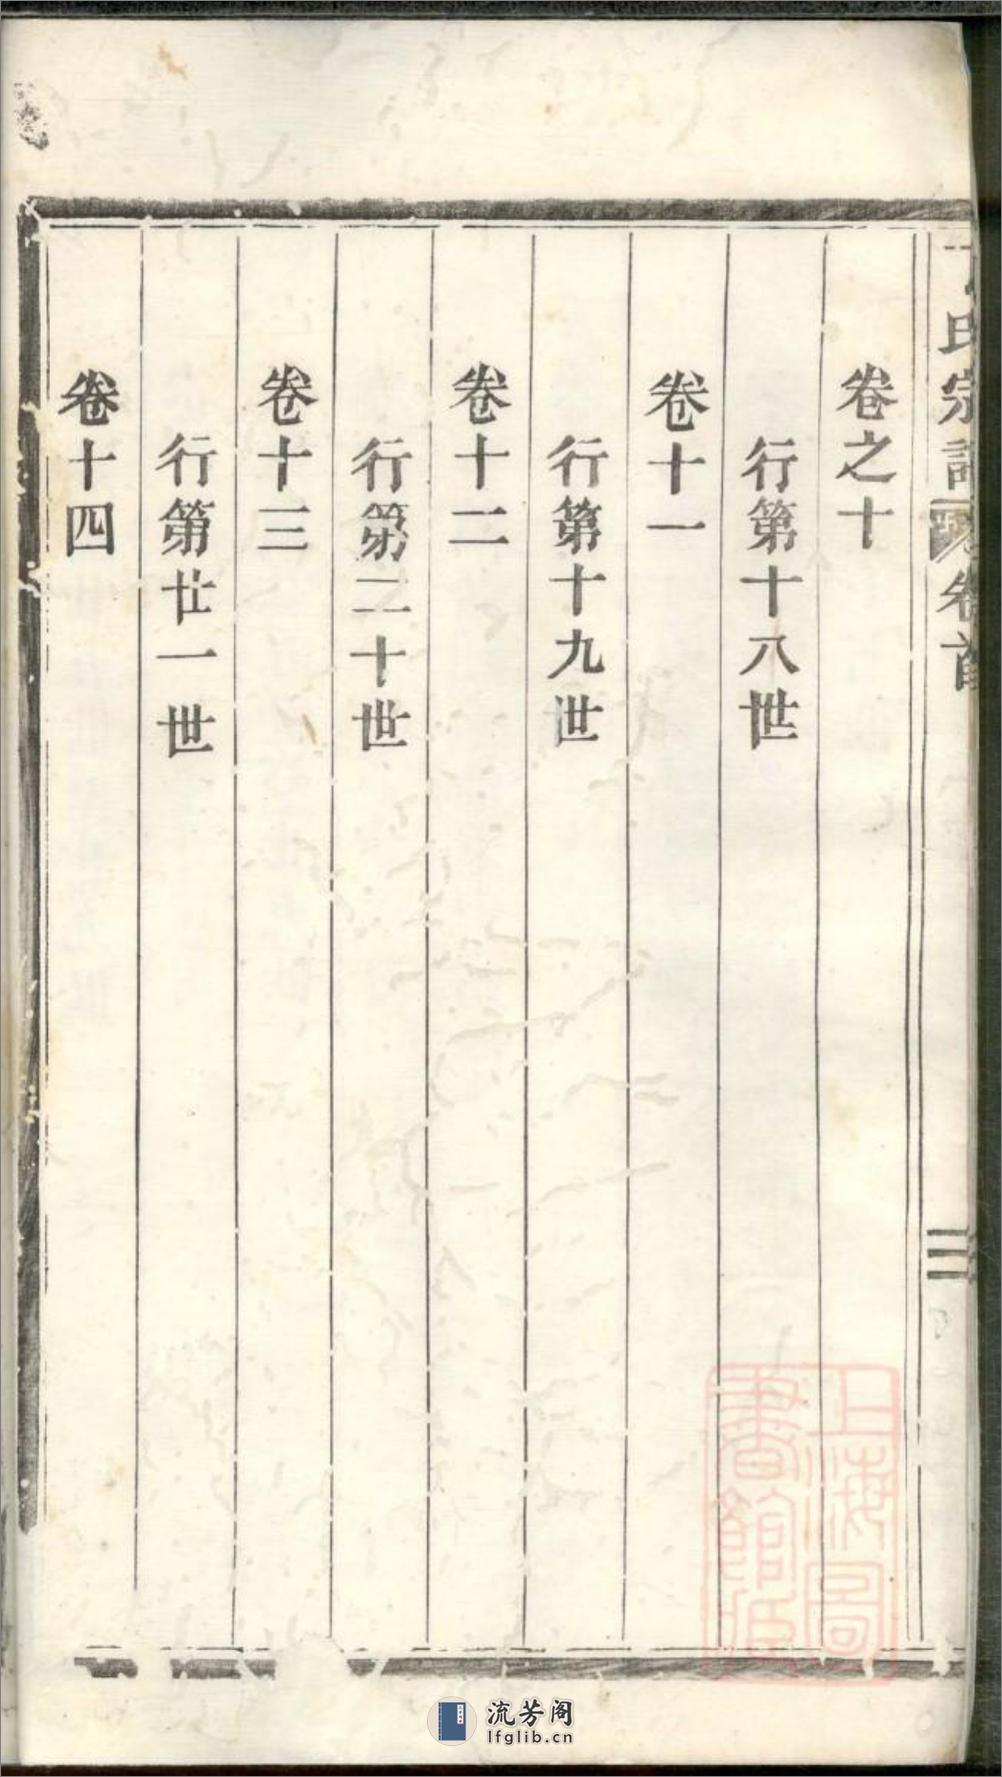 丁氏宗譜 卷首
二
卷之十
行第十八世
卷十一
行第十九世
卷十二
行第二十世
卷十三
行第廿一世
卷十四
上海圖書館藏
流芳阁
lfglib.cn